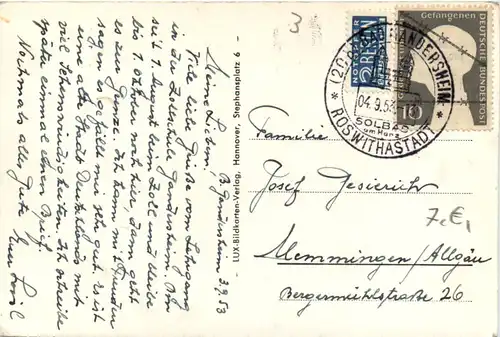 B. Gandersheim 3.9.53
Meine Lieben!
Viele liebe Grüße vom Lehrgang
in der Zollschule Gandersheim. Bin
seit 1. August beim Zoll und bleibe
bis 1. Oktober noch hier dann geht
es zur Grenze. Ich kann mit Freuden
sagen es gefällt mir sehr gut. Es ist
eine alte Stadt Deutschlands mit
viel Sehenswürdigkeiten. Ich schreibe
später einmal einen Brief.
Nochmals alles Gute
Euer
LUX-Bildkarten-Verlag, Hannover, Stephansplatz 9
3
NOTOPFER
2 BERLIN
STEUERMARKE
Gefangenen
DEUTSCHE BUNDESPOST
10
BAD GANDERSHEIM
04.9.53
SOLBAD
am Harz
ROSWITHASTADT
Familie
Josef Gesierich
7,€,
Memmingen/Allgäu
Bergermühlstraße 26